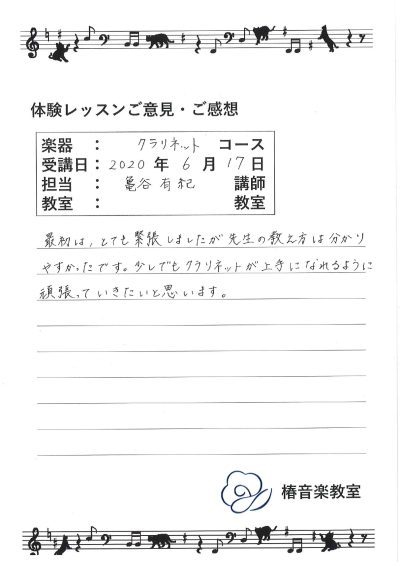 体験レッスンご意見・ご感想
楽器 ： クラリネット コース
受講日： 2020 年 6 月 17 日
担当 ： 亀谷 有紀 講師
教室 ： 教室
最初は、とても緊張しましたが先生の教え方は分かり
やすかったです。少しでもクラリネットが上手になれるように
頑張っていきたいと思います。
椿音楽教室